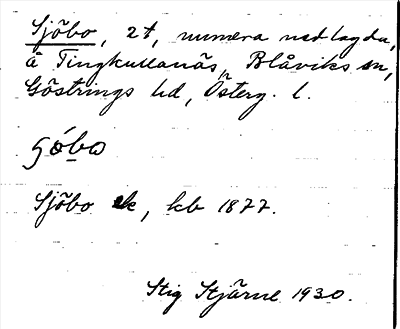 Sjöbo, 2 t, numera nedlagda,
å Tingkullanäs, Blåviks sn,
Göstrings hd, Österg. l.
Sjöbo ek, kb 1877.
Stig Stjärne 1930.